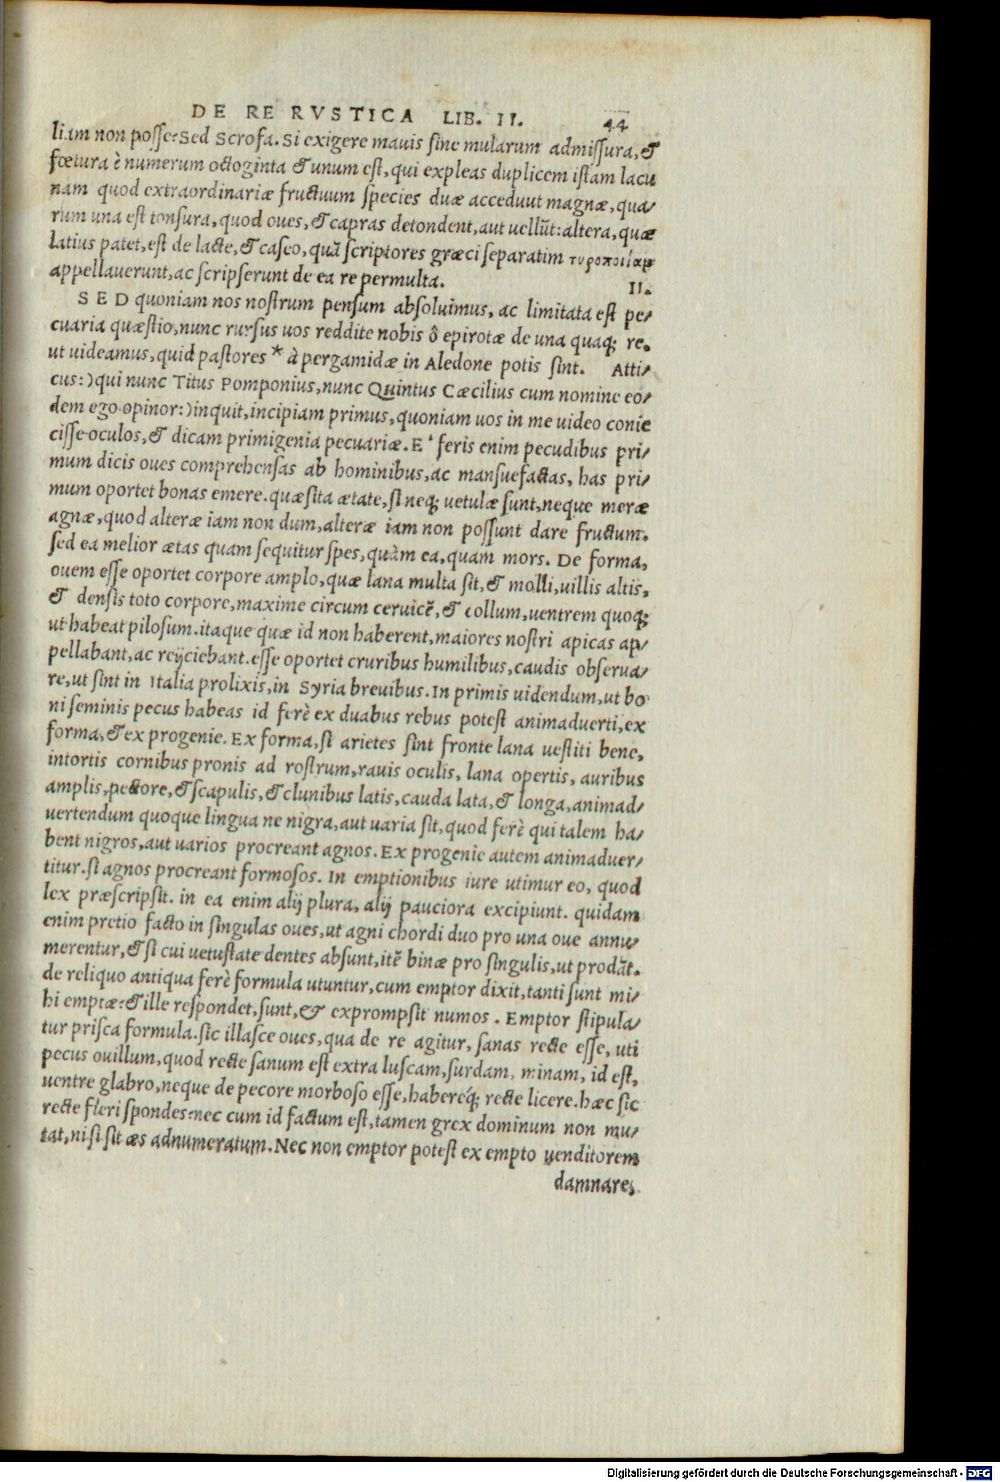 DE RE RVSTICA LIB. II. 44
liam non posse: Sed Scrofa. Si exigere mauis sine mularum admissura, &
fœtura è numerum octoginta & unum est, qui expleas duplicem istam lacu
nam quod extraordinariæ fructuum species duæ acceduut magnæ, qua/
rum una est tonsura, quod oues, & capras detondent, aut uellũt: altera, quæ
latius patet, est de lacte, & caseo, quã scriptores græci separatim τυροποιίαν
appellauerunt, ac scripserunt de ea re permulta.
II.
SED quoniam nos nostrum pensum absoluimus, ac limitata est pe/
cuaria quæstio, nunc rursus uos reddite nobis ô epirotæ de una quaq; re.
ut uideamus, quid pastores * à pergamidæ in Aledone potis sint. Atti/
cus:) qui nunc Titus Pomponius, nunc Quintus Cæcilius cum nomine eo/
dem ego opinor:) inquit, incipiam primus, quoniam uos in me uideo conie
cisse oculos, & dicam primigenia pecuariæ. E' feris enim pecudibus pri/
mum dicis oues comprehensas ab hominibus, ac mansuefactas, has pri/
mum oportet bonas emere. quæsita ætate, si neq; uetulæ sunt, neque meræ
agnæ, quod alteræ iam non dum, alteræ iam non possunt dare fructum.
sed ea melior ætas quam sequitur spes, quàm ea, quam mors. De forma,
ouem esse oportet corpore amplo, quæ lana multa sit, & molli, uillis altis,
& densis toto corpore, maxime circum ceruicẽ, & collum, uentrem quoq;
ut habeat pilosum. itaque quæ id non haberent, maiores nostri apicas ap/
pellabant, ac reijciebant. esse oportet cruribus humilibus, caudis obserua/
re, ut sint in Italia prolixis, in Syria breuibus. In primis uidendum, ut bo
ni seminis pecus habeas id ferè ex duabus rebus potest animaduerti, ex
forma, & ex progenie. Ex forma, si arietes sint fronte lana uestiti bene,
intortis cornibus pronis ad rostrum, rauis oculis, lana opertis, auribus
amplis, pectore, & scapulis, & clunibus latis, cauda lata, & longa, animad/
uertendum quoque lingua ne nigra, aut uaria sit, quod ferè qui talem ha/
bent nigros, aut uarios procreant agnos. Ex progenie autem animaduer/
titur. si agnos procreant formosos. In emptionibus iure utimur eo, quod
lex præscripsit. in ea enim alij plura, alij pauciora excipiunt. quidam
enim pretio facto in singulas oues, ut agni chordi duo pro una oue annu/
merentur, & si cui uetustate dentes absunt, itẽ binæ pro singulis, ut prodãt.
de reliquo antiqua ferè formula utuntur, cum emptor dixit, tanti sunt mi/
hi emptæ: & ille respondet, sunt, & exprompsit numos. Emptor stipula/
tur prisca formula. sic illasce oues, qua de re agitur, sanas recte esse, uti
pecus ouillum, quod recte sanum est extra luscam, surdam, minam, id est,
uentre glabro, neque de pecore morboso esse, habereq́; recte licere. hæc sic
recte fieri spondes: nec cum id factum est, tamen grex dominum non mu/
tat, nisi sit æs adnumeratum. Nec non emptor potest ex empto uenditorem
damnare,
Digitalisierung gefördert durch die Deutsche Forschungsgemeinschaft - DFG